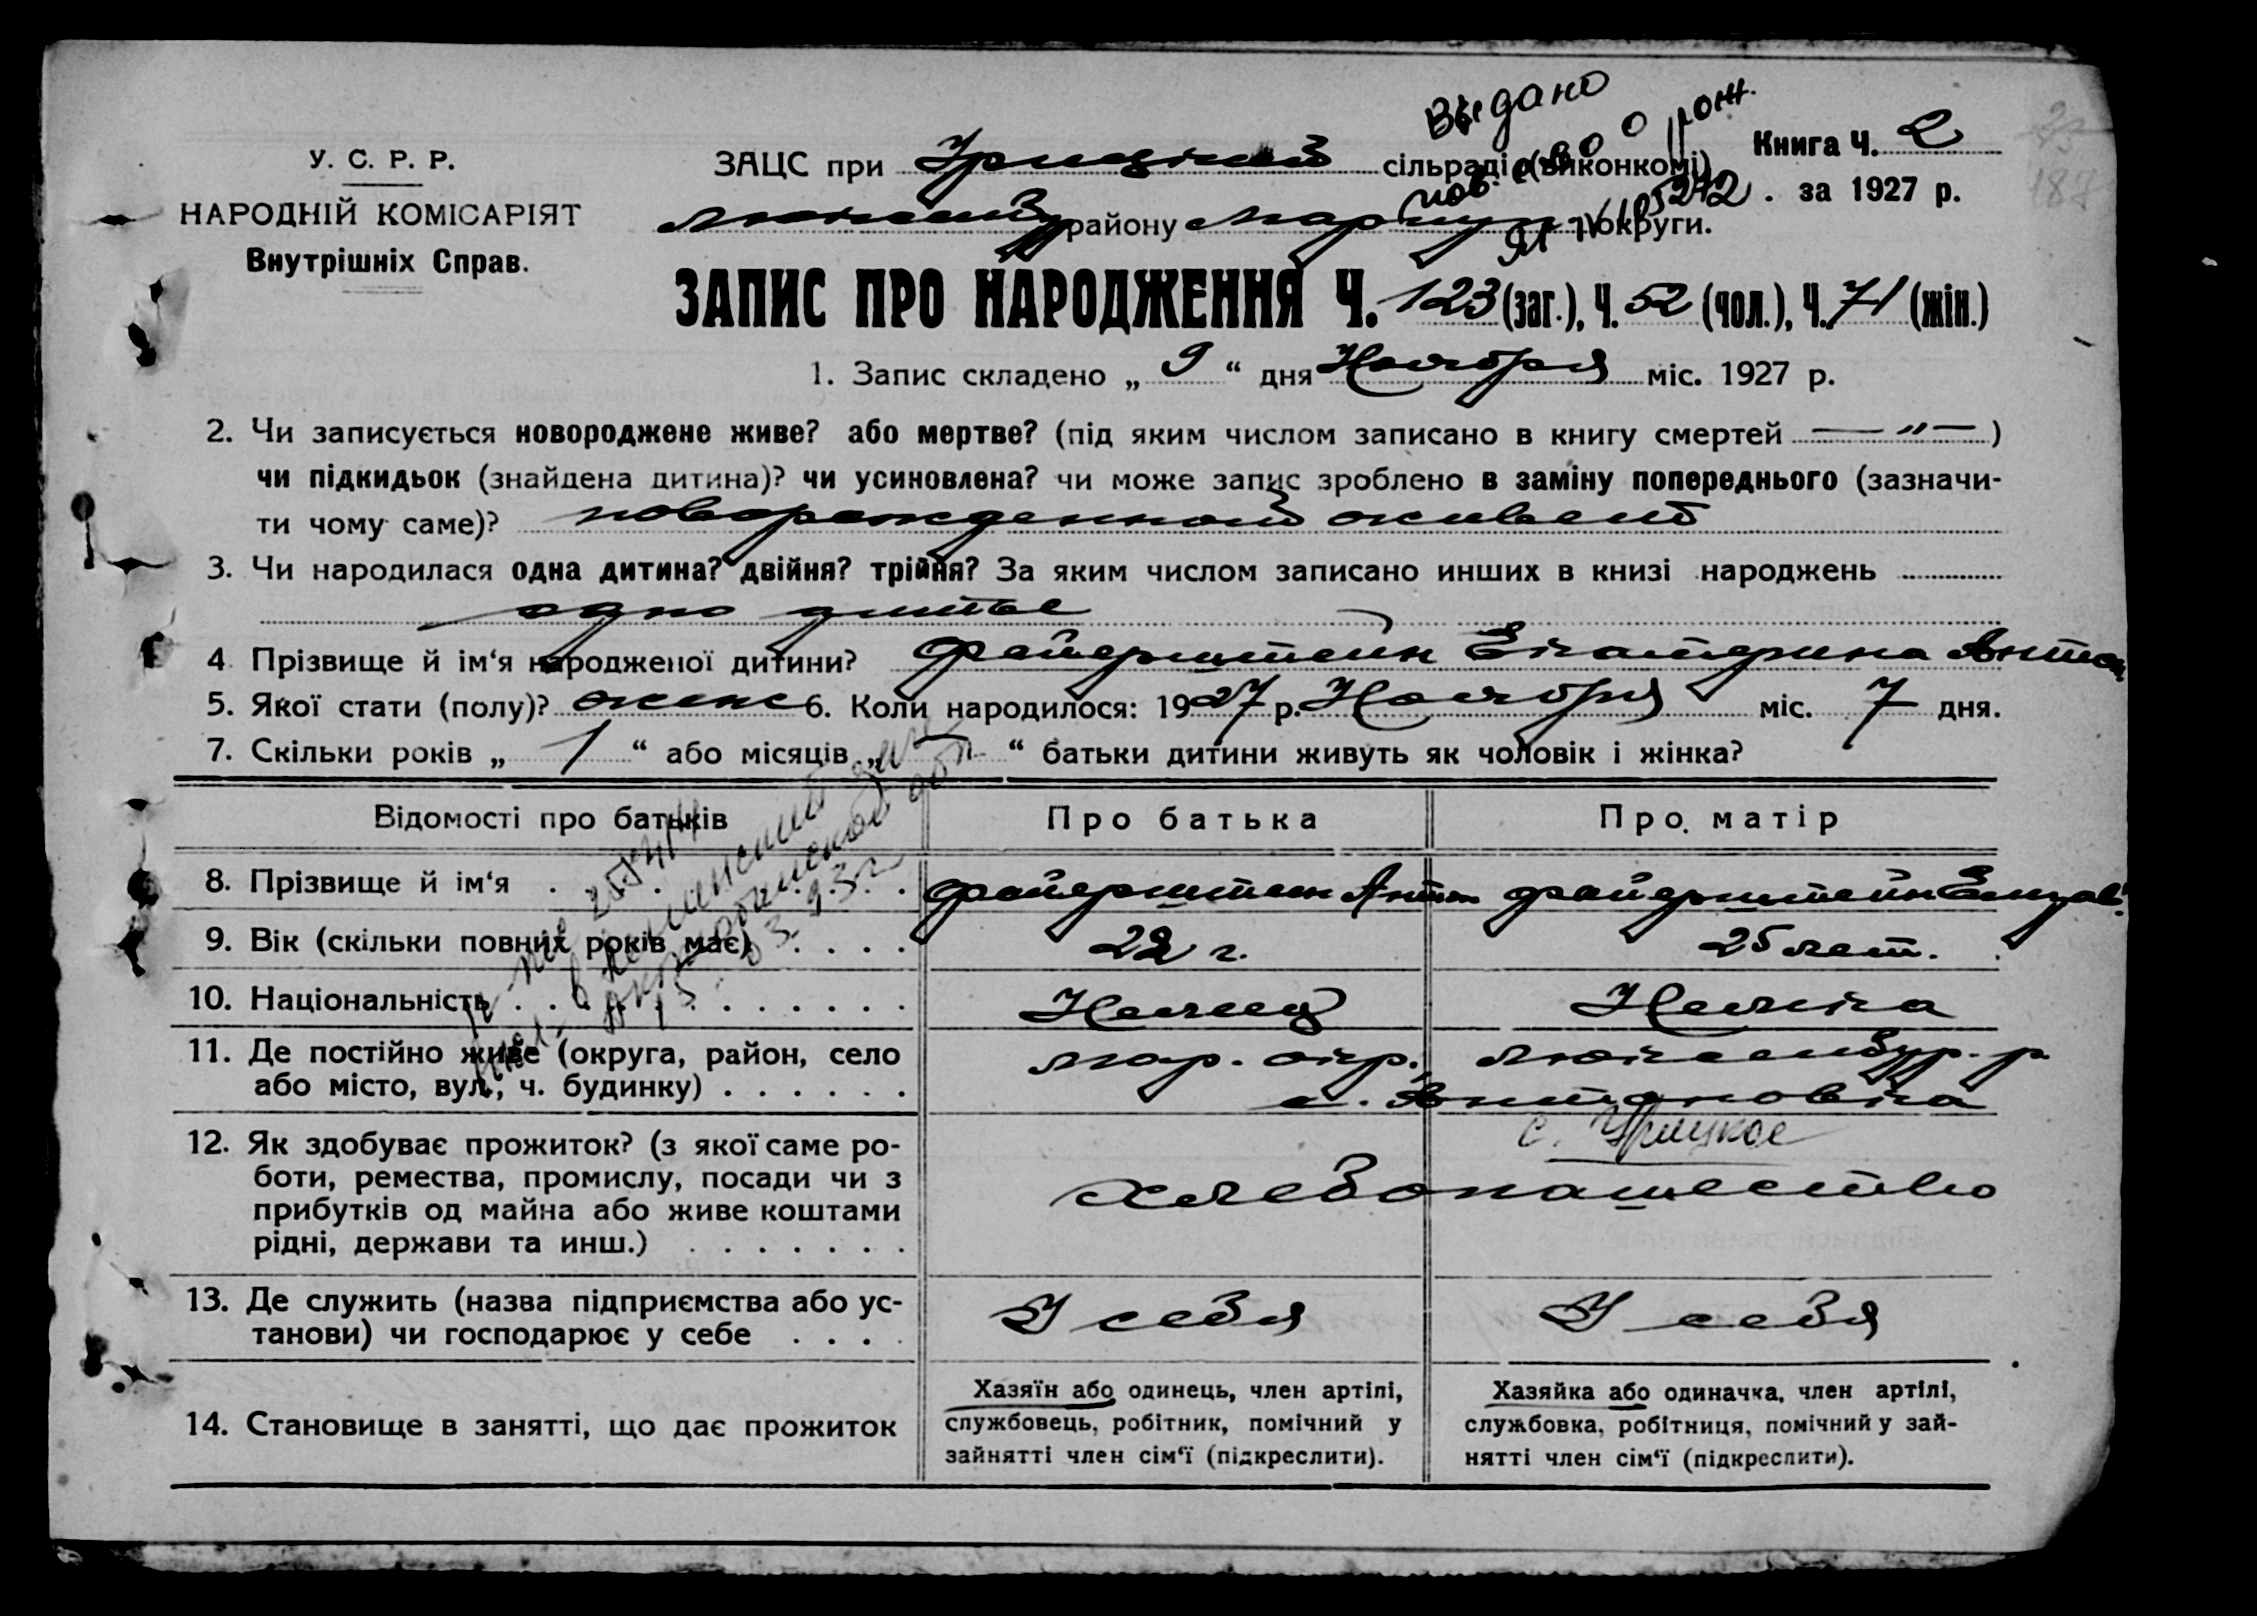 Выдано
пов. о рож.
У. С. Р. Р.
НАРОДНІЙ КОМІСАРІЯТ
Внутрішніх Справ.
ЗАЦС при Урицкой сільраді (виконкомі) Книга Ч. 2
району Мариуп округи. за 1927 р.
ЗАПИС ПРО НАРОДЖЕННЯ Ч. 123 (заг.), Ч. 52 (чол.), Ч. 71 (жін.)
1. Запис складено „ 9 “ дня Ноября міс. 1927 р.
2. Чи записується новороджене живе? або мертве? (під яким числом записано в книгу смертей — „ — )
чи підкидьок (знайдена дитина)? чи усиновлена? чи може запис зроблено в заміну попереднього (зазначи-
ти чому саме)? новорожденной живой
3. Чи народилася одна дитина? двійня? трійня? За яким числом записано инших в книзі народжень
одно дитье
4 Прізвище й ім‘я народженої дитини? Файерштейн Екатерина Антон
5. Якої стати (полу)? женс 6. Коли народилося: 1927 р. Ноября міс. 7 дня.
7. Скільки років „ 1 “ або місяців „ — “ батьки дитини живуть як чоловік і жінка?
Відомості про батьків Про батька Про матір
8. Прізвище й ім‘я . . . . . . . Файерштеин Антон Файерштейн Елизав.
9. Вік (скільки повних років має) . . . . 22 г. 25 лет.
10. Національність . . . . . . . . . Немец Немка
11. Де постійно живе (округа, район, село Мар. окр., Люксембур. р
або місто, вул., ч. будинку) . . . . . . с. Антоновка
с. Урицкое
12. Як здобуває прожиток? (з якої саме ро-
боти, ремества, промислу, посади чи з хлебопашество
прибутків од майна або живе коштами
рідні, держави та инш.) . . . . . . .
13. Де служить (назва підприємства або ус- У себя У себя
танови) чи господарює у себе . . . .
14. Становище в занятті, що дає прожиток
Хазяїн або одинець, член артілі,
службовець, робітник, помічний у
зайнятті член сім‘ї (підкреслити).
Хазяйка або одиначка, член артілі,
службовка, робітниця, помічний у зай-
нятті член сім‘ї (підкреслити).